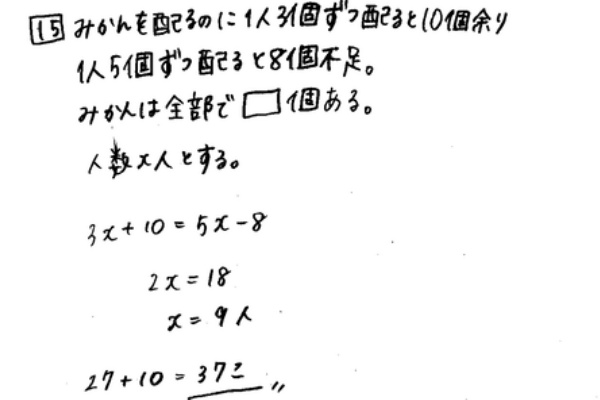 15 みかんを配るのに1人3個ずつ配ると10個余り
1人5個ずつ配ると8個不足。
みかんは全部で□個ある。
人数x人とする。
3x+10=5x-8
2x=18
x=9人
27+10=37こ〃